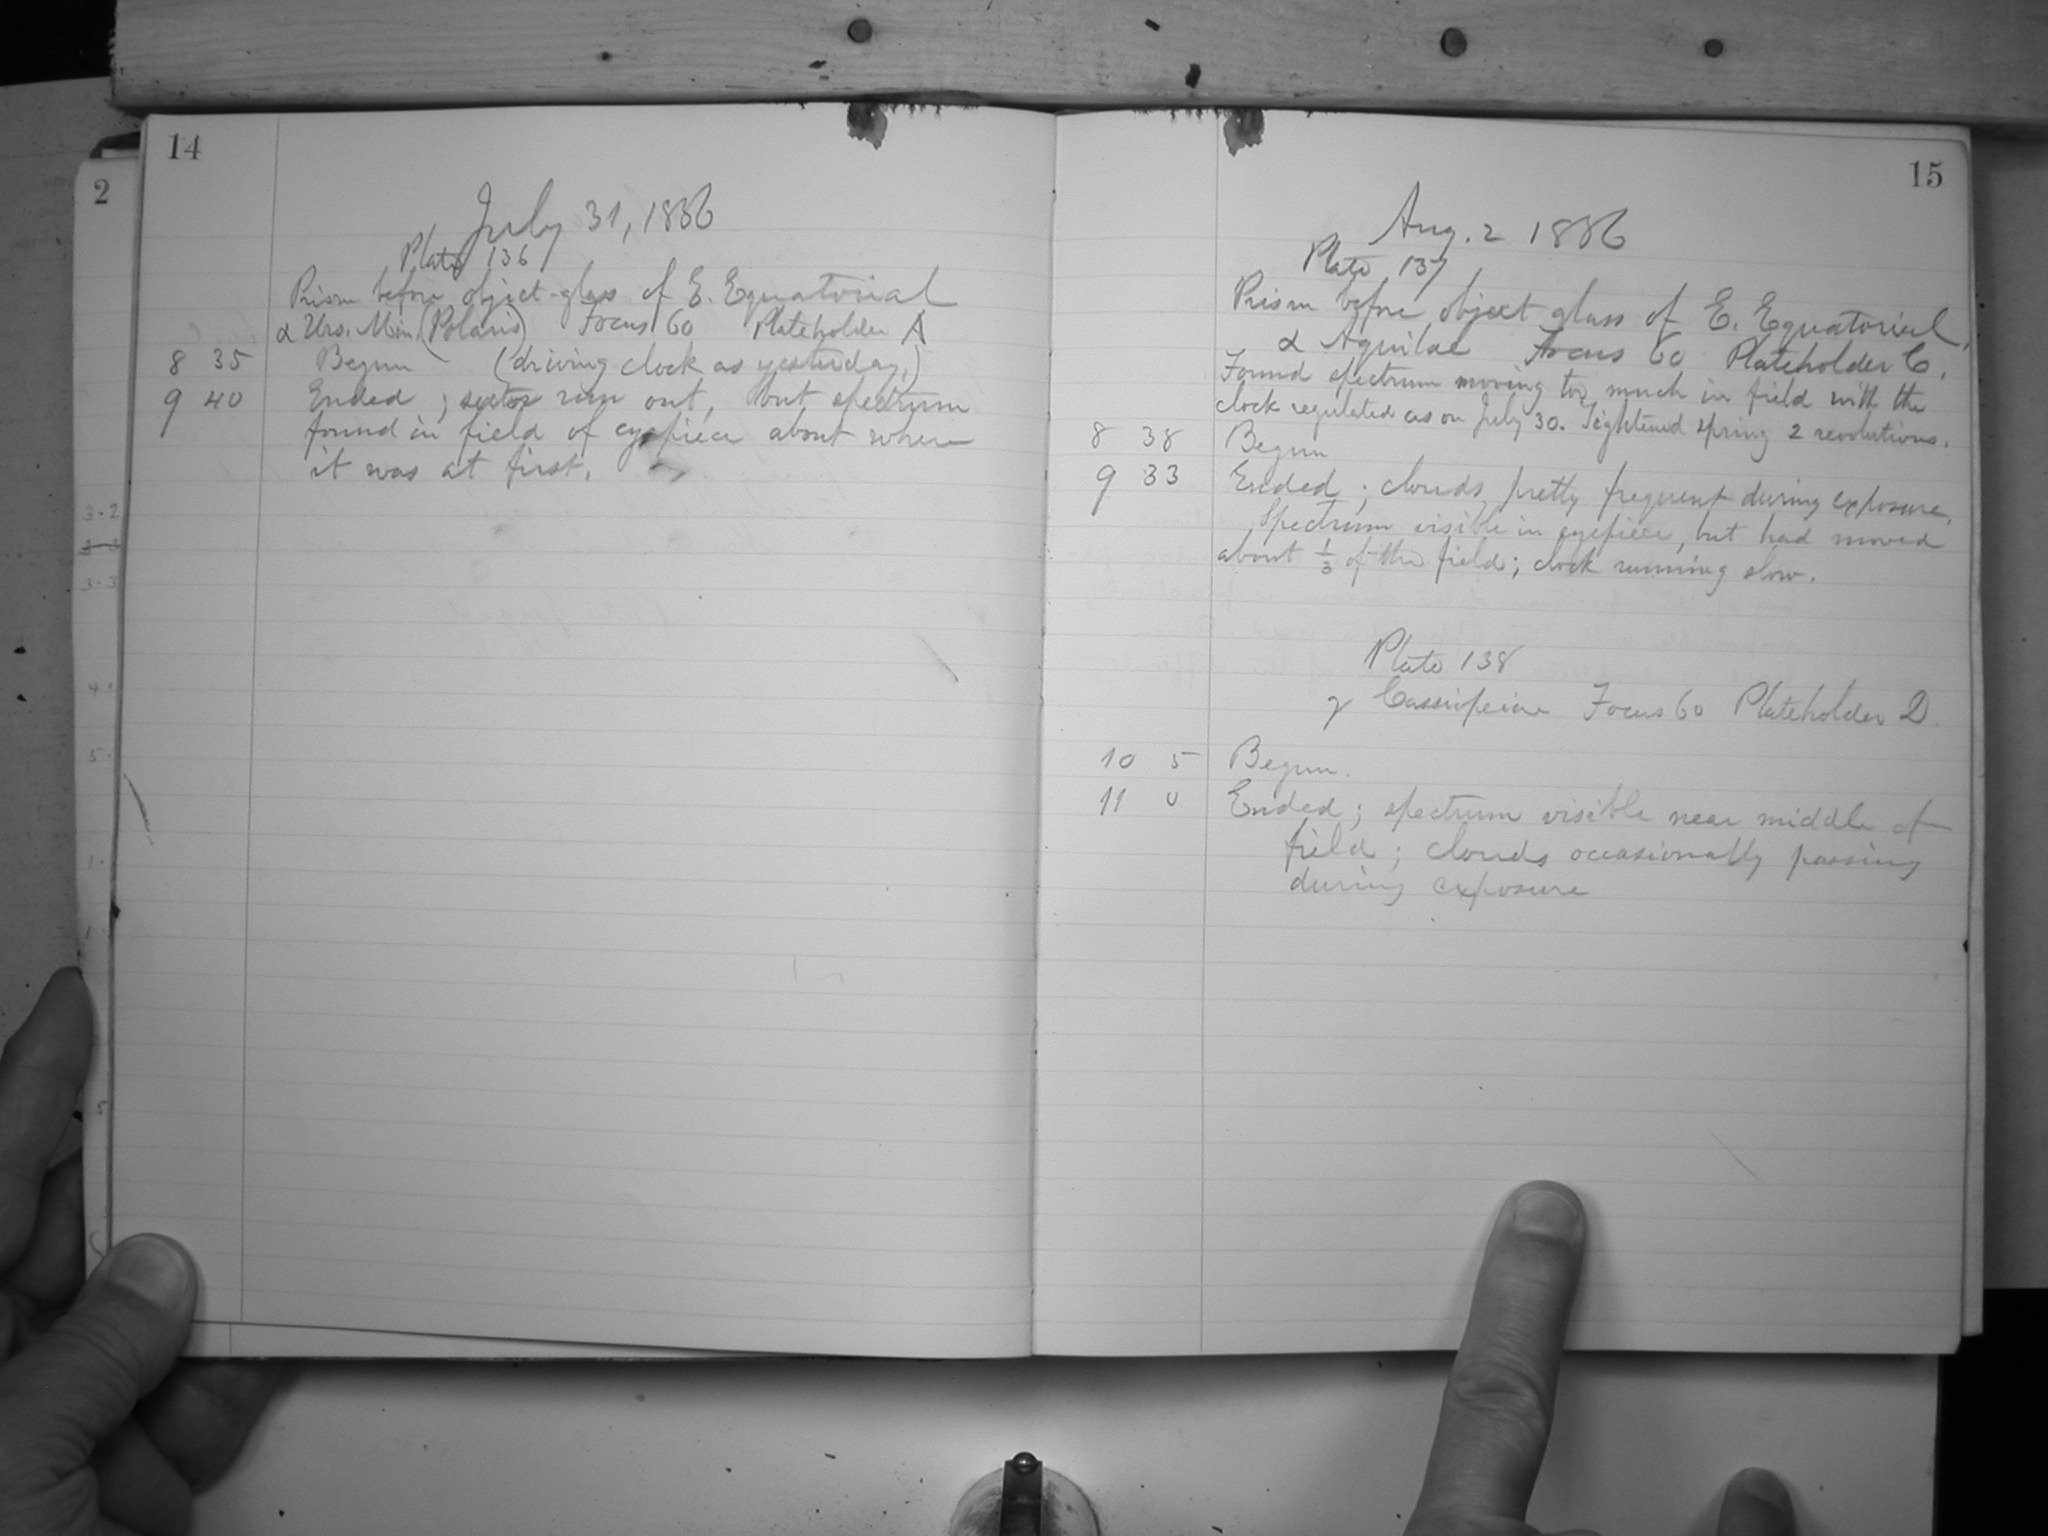 14
July 31, 1886
Plate 136
Prism before object-glass of E. Equatorial
α Urs. Min. (Polaris) Focus 60 Plateholder A
8 35 Begun (driving clock as yesterday.)
9 40 Ended; sector run out, but spectrum
found in field of eyepiece about where
it was at first.
2
3.2
3.3
4.
5.
1.
1.
5
15
Aug. 2 1886
Plate 137
Prism before object glass of E. Equatorial,
α Aquilae Focus 60 Plateholder C.
Found spectrum moving too much in field with the
clock regulated as on July 30. Tightened spring 2 revolutions.
8 38 Begun
9 33 Ended; clouds pretty frequent during exposure.
Spectrum visible in eyepiece, but had moved
about 1/3 of the field; clock running slow.
Plate 138
γ Cassiopeiae Focus 60 Plateholder D
10 5 Begun.
11 0 Ended; spectrum visible near middle of
field; clouds occasionally passing
during exposure